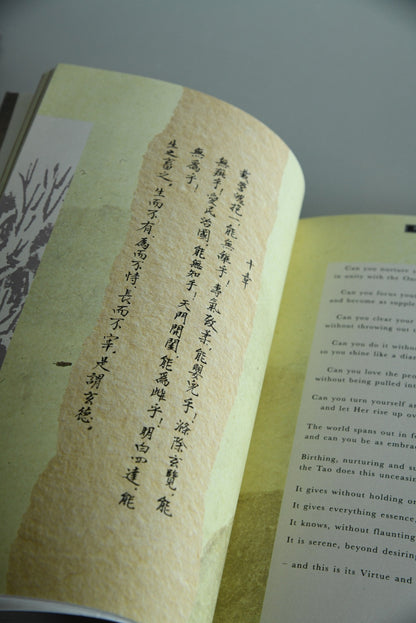 十章
載營魄抱一，能無離乎！專氣致柔，能嬰兒乎！滌除玄覽，能
無疵乎！愛民治國，能無知乎！天門開闔，能為雌乎！明白四達，能
無為乎！
生之畜之，生而不有，為而不恃，長而不宰，是謂玄德。
Can you nurture
in unity with the One
Can you focus your
and become as supple
Can you clear your
without throwing out
Can you do it without
so you shine like a
Can you love the people
without being pulled in
Can you turn yourself
and let Her rise up
The world spans out in
and can you be as
Birthing, nurturing and
the Tao does this
It gives without holding
It gives everything essence,
It knows, without flaunting
It is serene, beyond
– and this is its Virtue and